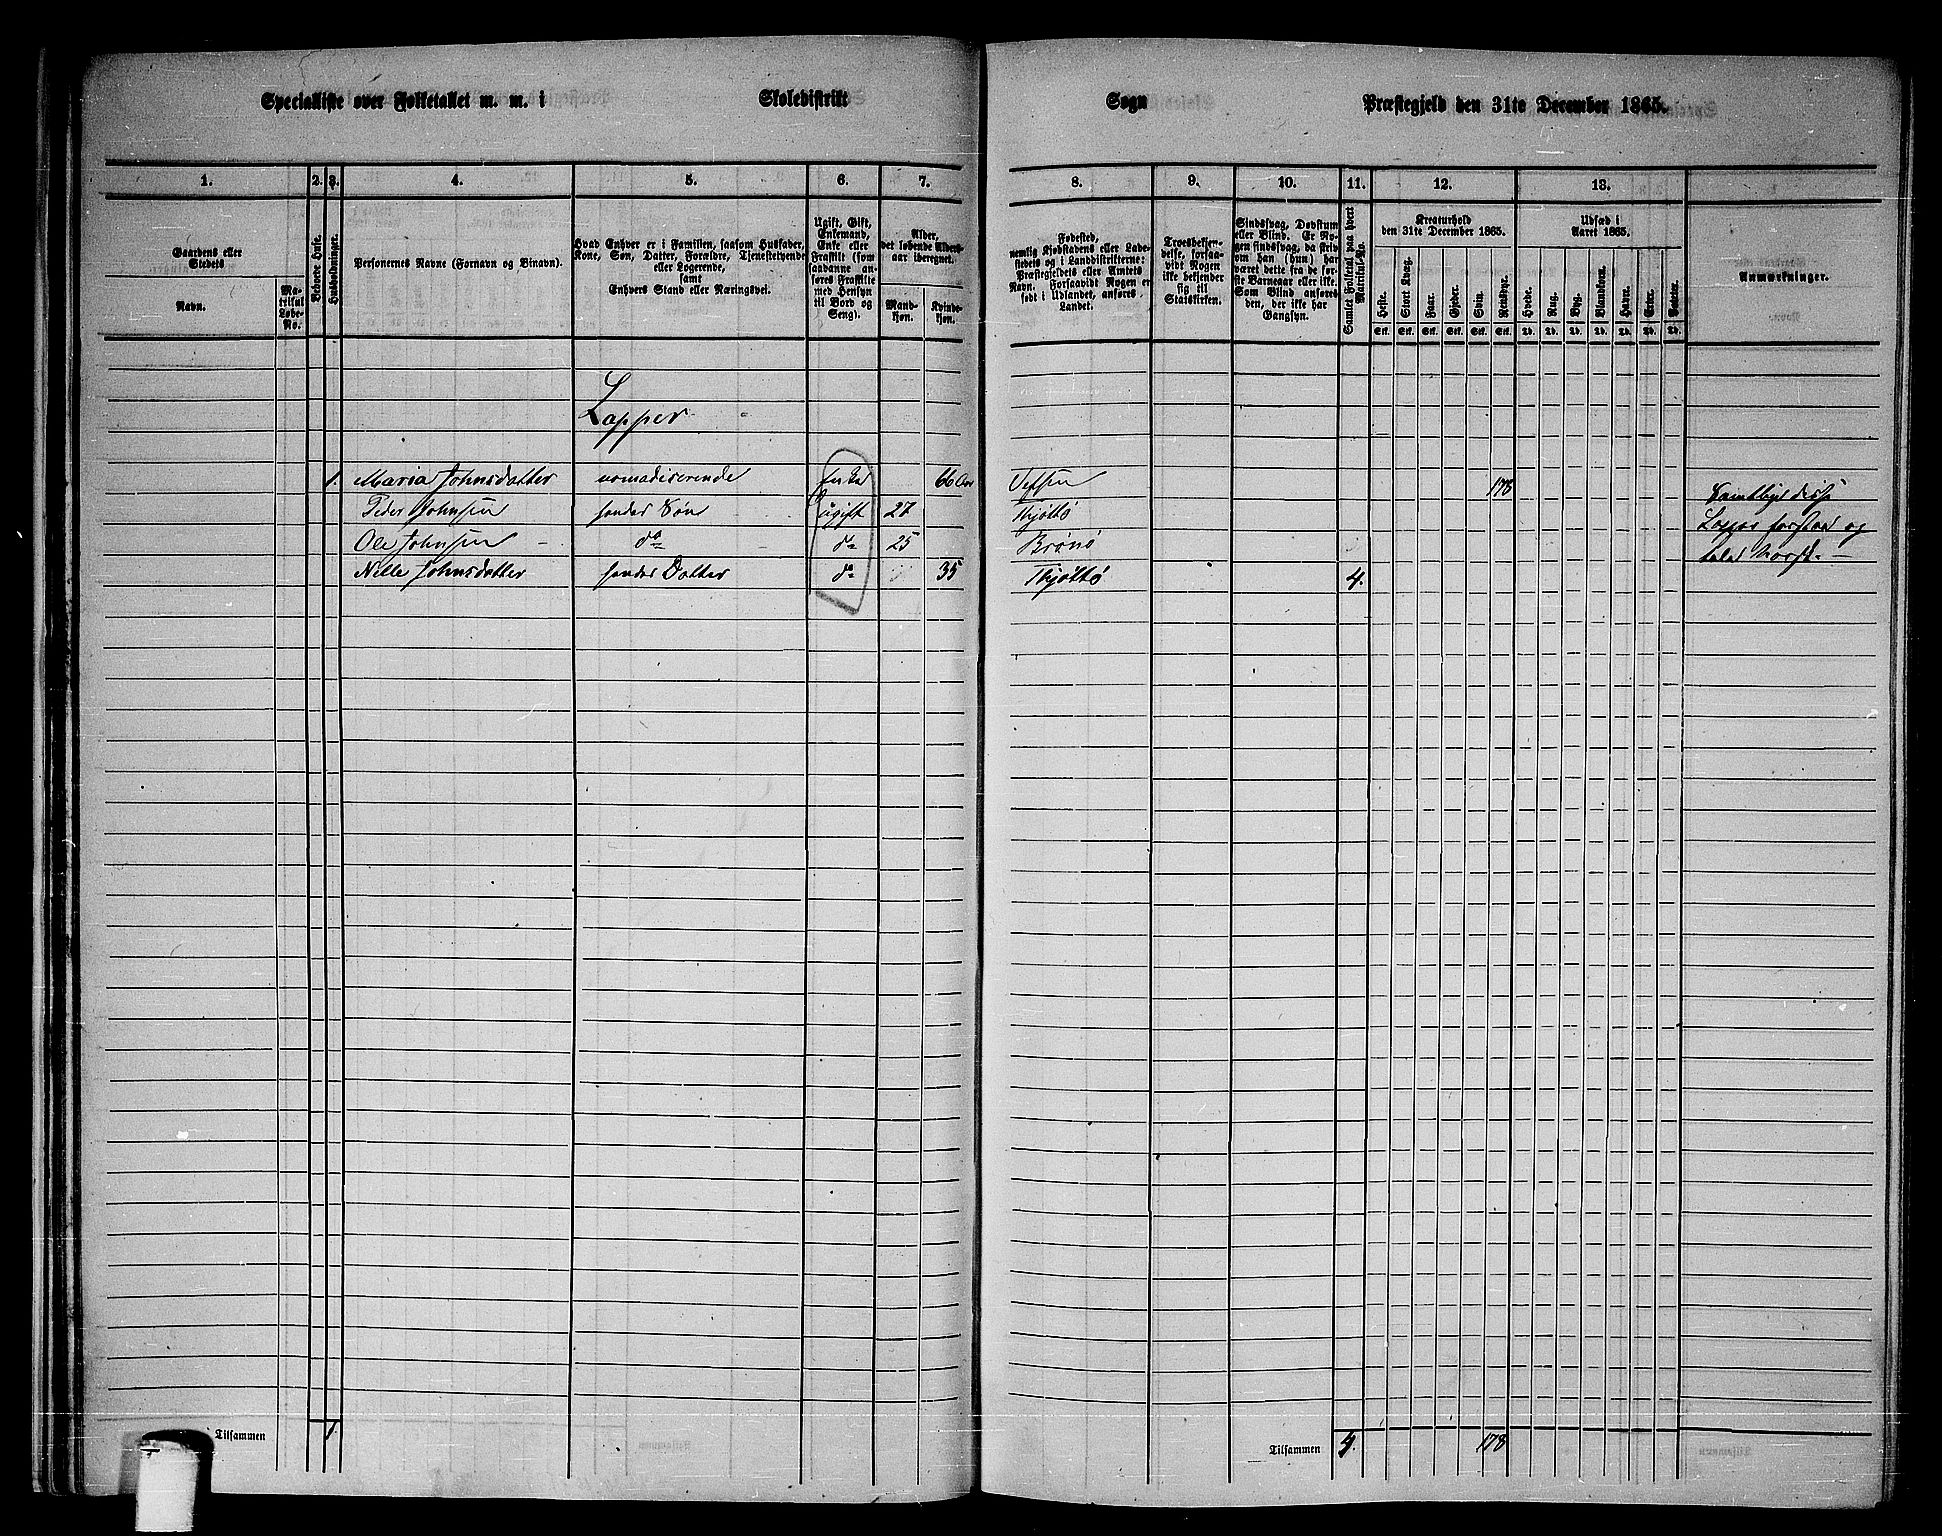 Specialliste over Folketallet m. m. i Skoledistrikt Sogn Præstegjeld den 31te December 1865.
1. 2. 3. 4. 5. 6. 7. 8. 9. 10. 11. 12. 13.
Gaardens eller Stedets
Navn.
Matrikul Løbe-No.
Beboede Huse.
Husholdninger.
Personernes Navne (Fornavn og Binavn).
Hvad Enhver er i Familien, saasom Husfader, Kone, Søn, Datter, Forældre, Tjenestetyende eller Logerende,
samt
Enhvers Stand eller Næringsvei.
Ugift, Gift, Enkemand, Enke eller Fraskilt (som saadanne anføres Fraskilte med Hensyn til Bord og Seng).
Alder, det løbende Alders-aar iberegnet.
Mandkjøn.
Kvindekjøn.
Fødested,
nemlig Kjøbstadens eller Ladestedets og i Landdistrikterne: Præstegjeldets eller Amtets Navn. Forsaavidt Nogen er født i Udlandet, anføres Landet.
Troesbekjendelse, forsaavidt Nogen ikke bekjender sig til Statskirken.
Sindssvag, Døvstum eller Blind. Er Nogen sindssvag, da skrives om han (hun) har været dette fra de første Barneaar eller ikke. Som Blind ansøres den, der ikke har Gangsyn.
Samlet Folketal paa hvert Matrikul-No.
Kreaturhold
den 31te December 1865.
Heste. Stort Kvæg. Faar. Gjeder. Sviin. Rensdyr.
Stk. Stk. Stk. Stk. Stk. Stk.
Udsæd i
Aaret 1865.
Hvede. Rug. Byg. Blandkorn. Havre. Erter. Poteter.
Td. Td. Td. Td. Td. Td. Td.
Anmærkninger.
Lapper
1. Maria Johnsdatter nomadiserende Enke 66 Aar Vefsen 178
Peder Johnsen hendes Søn Ugift 27 Thjøttø
Ole Johnsen do do 25 Brønø
Nille Johnsdatter hendes Datter do 35 Thjøttø 4.
Samtlige disse
Lapper forstaa og
tale Norsk. —
Tilsammen 1. Tilsammen 4. 178